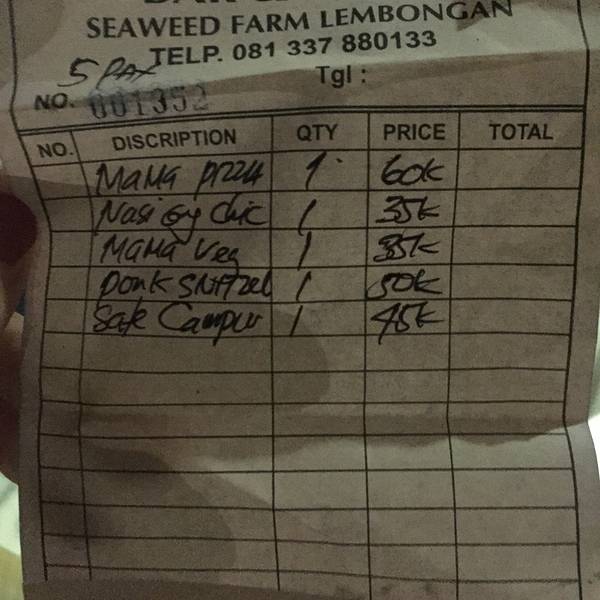 SEAWEED FARM LEMBONGAN
TELP. 081 337 880133
5 PAX Tgl :
NO. 001352
NO. DISCRIPTION QTY PRICE TOTAL
MaMa Pizza 1 60k
Nasi Gg Chic 1 35k
MaMa Veg 1 35k
Pork SNitzel 1 50k
Sate Campur 1 45k